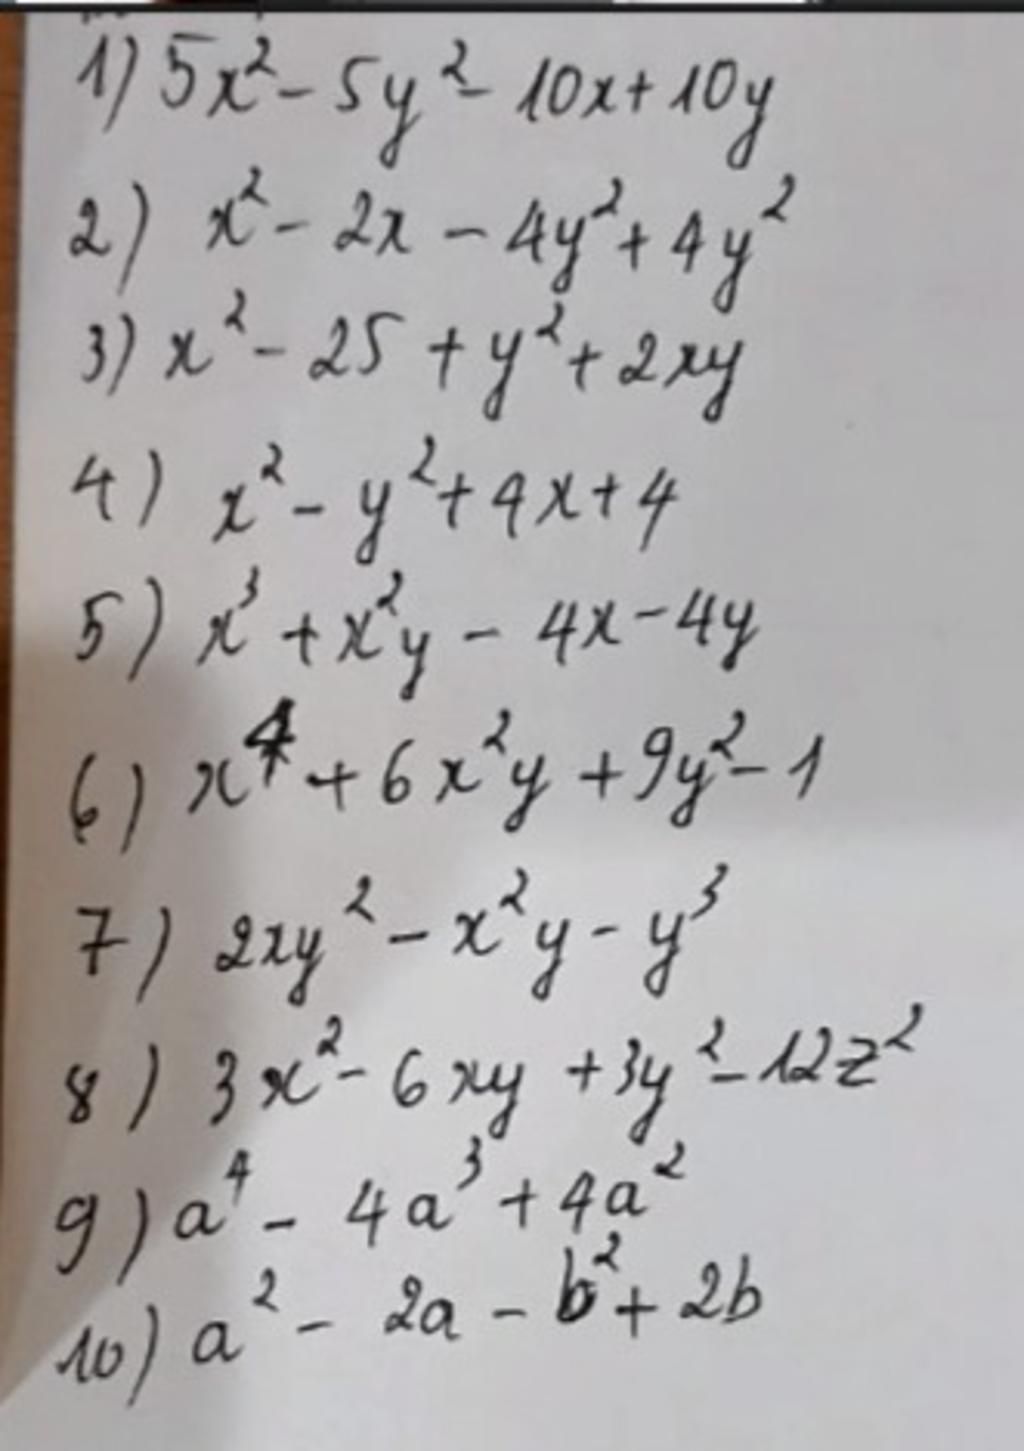 1) 5x² - 5y² - 10x + 10y
2) x² - 2x - 4y² + 4y²
3) x² - 25 + y² + 2xy
4) x² - y² + 4x + 4
5) x³ + x²y - 4x - 4y
6) x⁴ + 6x²y + 9y² - 1
7) 2xy² - x²y - y³
8) 3x² - 6xy + 3y² - 12z²
9) a⁴ - 4a³ + 4a²
10) a² - 2a - b² + 2b